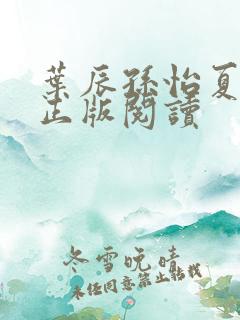 葉辰孫怡夏
正版閱讀
冬雪晚晴
未经同意禁止转载